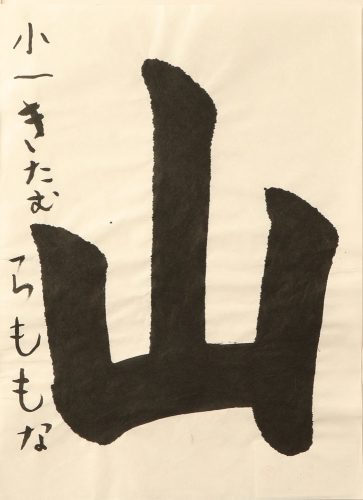 山
小一きたむらももな